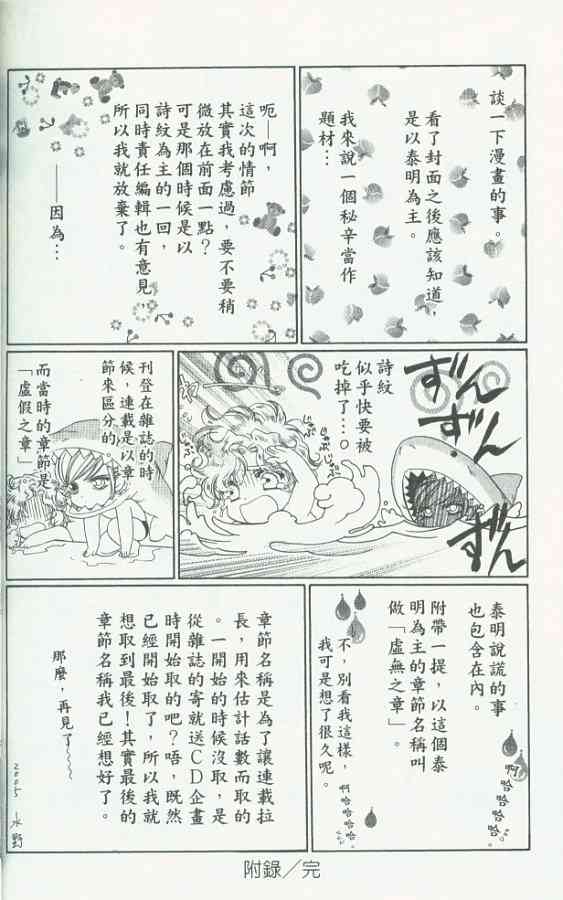 談一下漫畫的事。
看了封面之後應該知道，
是以泰明為主。
我來說一個秘辛當作
題材…
呃—啊，
這次的情節
其實我考慮過，要不要稍
微放在前面一點？
可是那個時候是以
詩紋為主的一回，
同時責任編輯也有意見，
所以我就放棄了。
——因為…
ずんずん
ずん
詩紋
似乎快要被
吃掉了…。
刊登在雜誌的時
候，連載是以章
節來區分的，
而當時的章節是
「虛假之章」
泰明說謊的事
也包含在內。
附帶一提，以這個泰
明為主的章節名稱叫
做「虛無之章」。
啊哈哈哈哈…
不，別看我這樣，
我可是想了很久呢。
啊哈哈哈哈
章節名稱是為了讓連載拉
長，用來估計話數而取的
。一開始的時候沒取，是
從雜誌的寄就送CD企畫
時開始取的吧？唔，既然
已經開始取了，所以我就
想取到最後！其實最後的
章節名稱我已經想好了。
那麼，再見了～～～
2005 水野
附錄／完